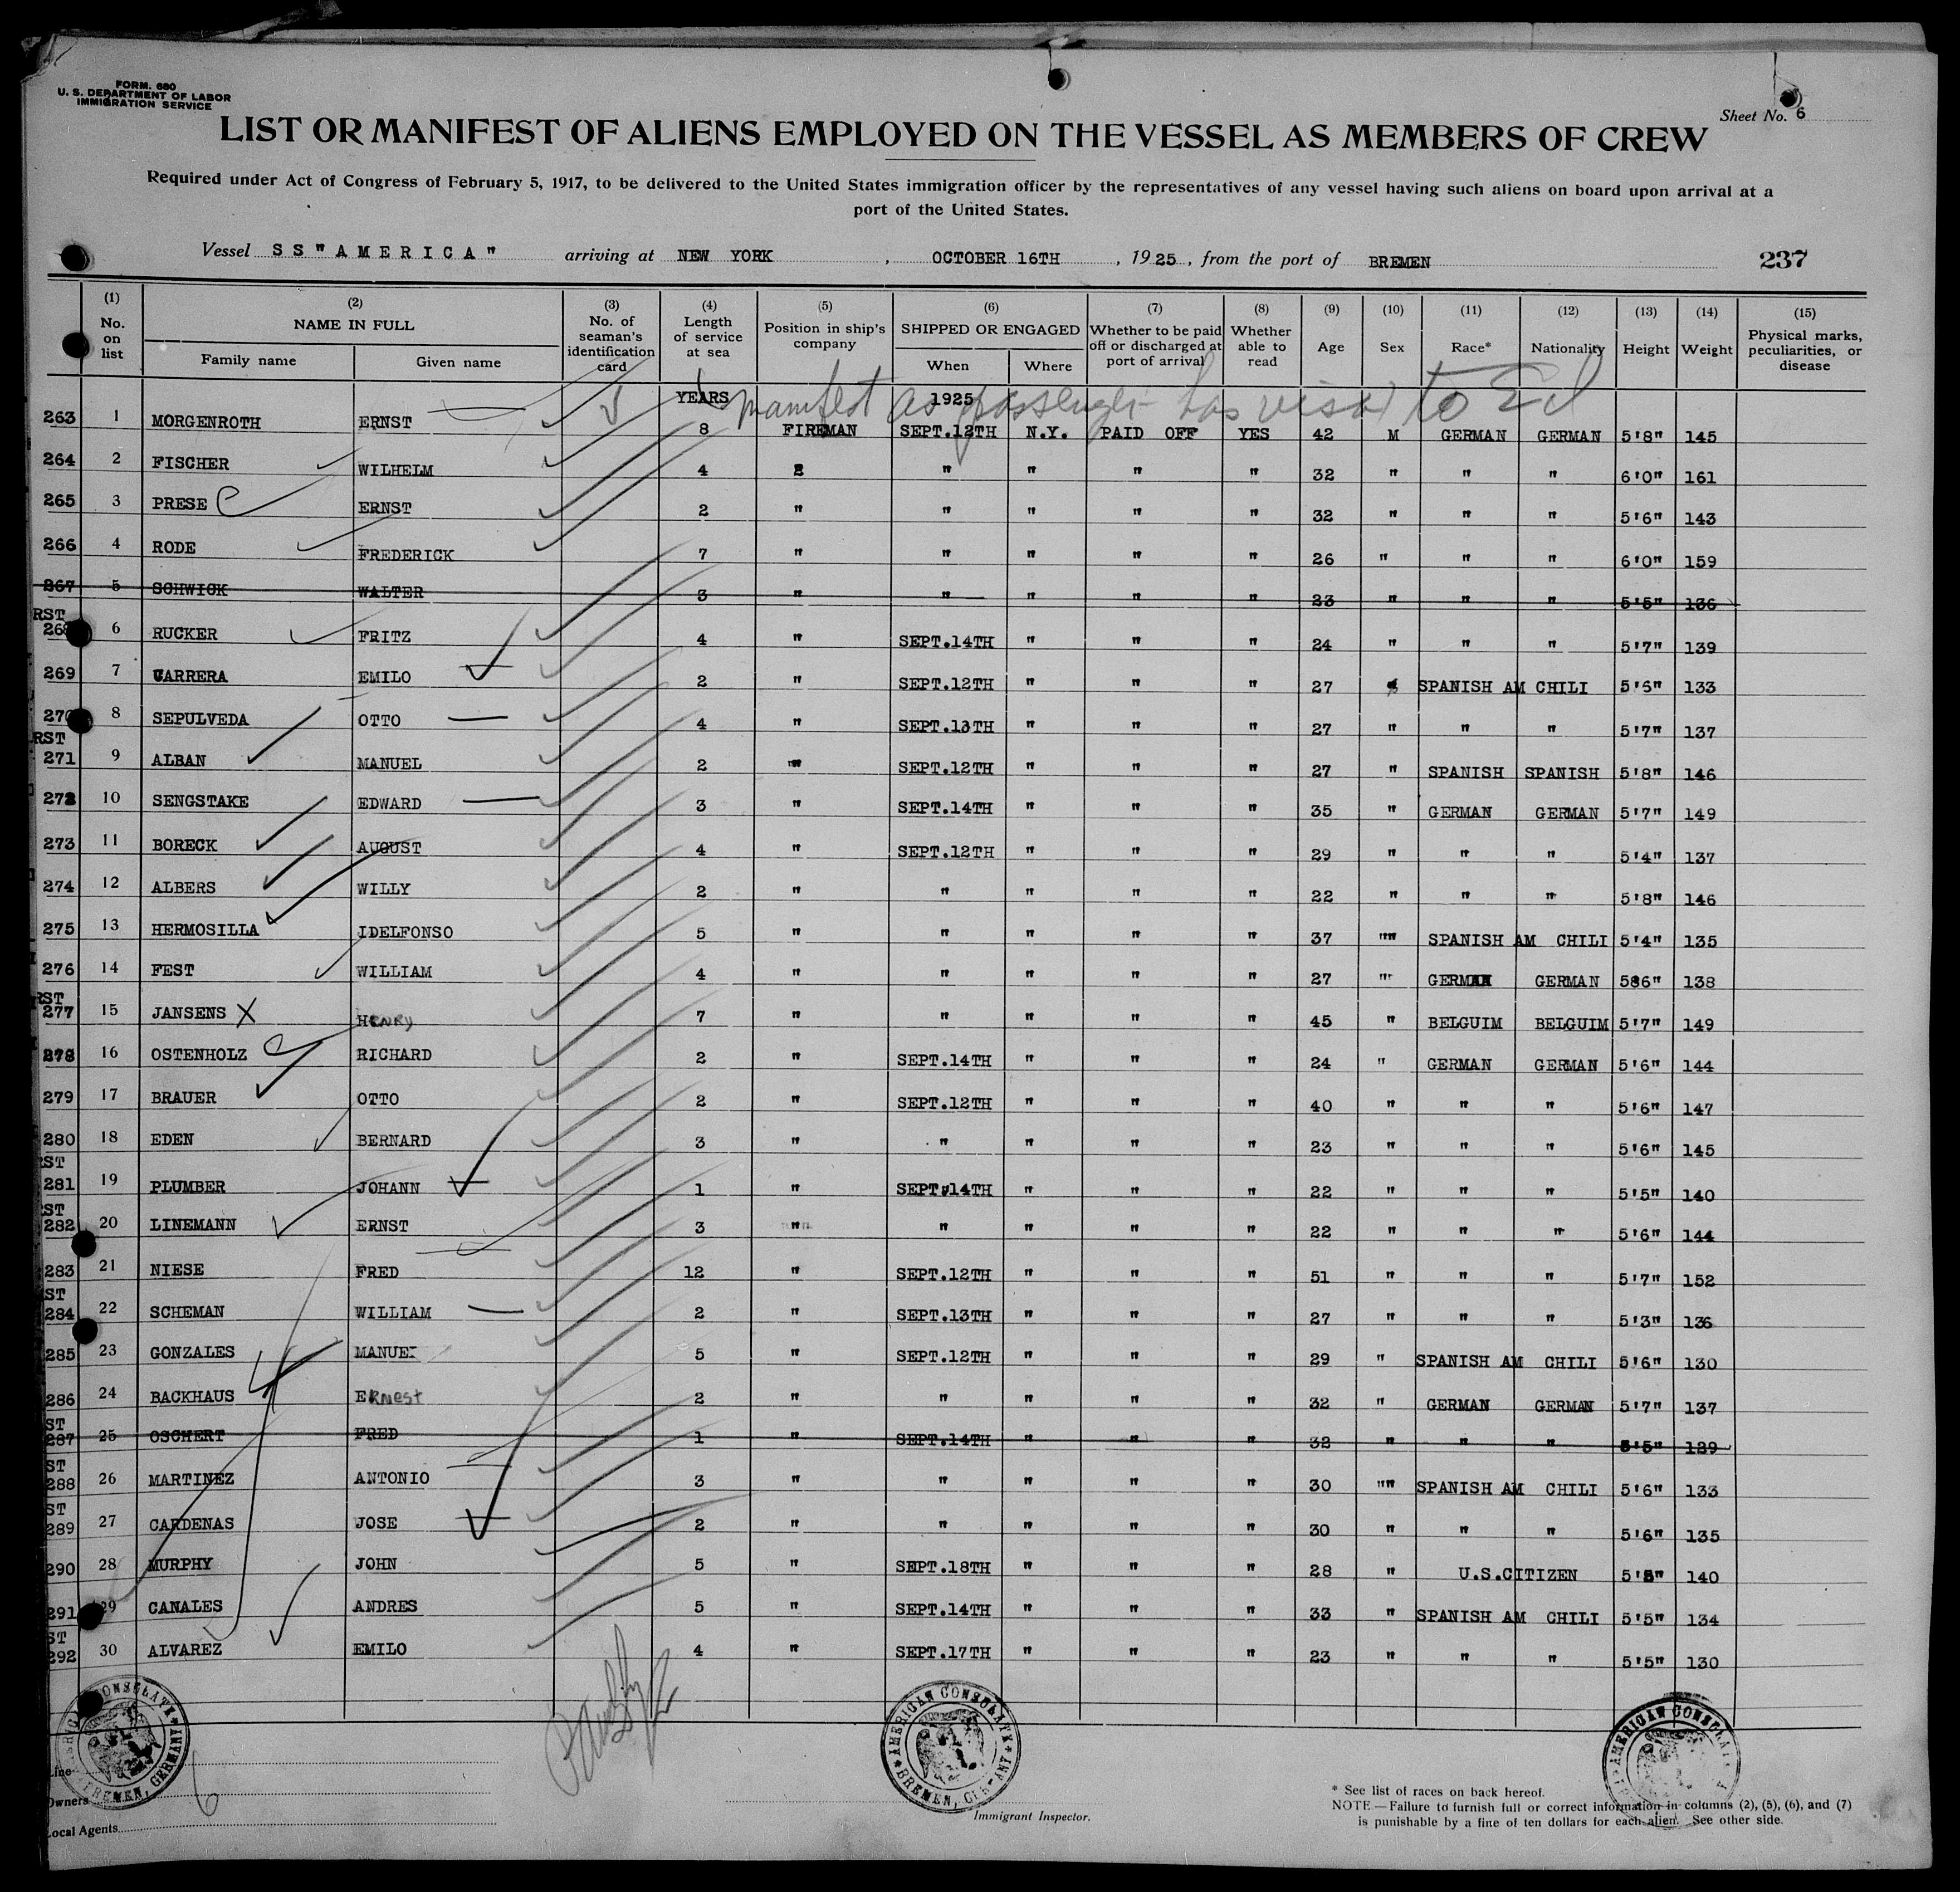 FORM. 680
U. S. DEPARTMENT OF LABOR
IMMIGRATION SERVICE
Sheet No. 6
LIST OR MANIFEST OF ALIENS EMPLOYED ON THE VESSEL AS MEMBERS OF CREW
Required under Act of Congress of February 5, 1917, to be delivered to the United States immigration officer by the representatives of any vessel having such aliens on board upon arrival at a
port of the United States.
Vessel SS"AMERICA" arriving at NEW YORK , OCTOBER 16TH , 1925 , from the port of BREMEN 237
(1) No. on list (2) NAME IN FULL Family name Given name (3) No. of seaman's identification card (4) Length of service at sea (5) Position in ship's company (6) SHIPPED OR ENGAGED When Where (7) Whether to be paid off or discharged at port of arrival (8) Whether able to read (9) Age (10) Sex (11) Race* (12) Nationality (13) Height (14) Weight (15) Physical marks, peculiarities, or disease
YEARS 1925
manifest as passenger has visa to
263 1 MORGENROTH ERNST 8 FIREMAN SEPT.12TH N.Y. PAID OFF YES 42 M GERMAN GERMAN 5'8" 145
264 2 FISCHER WILHELM 4 " " " " 32 " " " 6'0" 161
265 3 PRESE ERNST 2 " " " " " 32 " " " 5'6" 143
266 4 RODE FREDERICK 7 " " " " " 26 " " " 6'0" 159
267 5 SCHWICK WALTER 3 " " " " " 23 " " " 5'5" 136
RST
268 6 RUCKER FRITZ 4 " SEPT.14TH " " " 24 " " " 5'7" 139
269 7 CARRERA EMILO 2 " SEPT.12TH " " " 27 SPANISH AM CHILI 5'6" 133
270 8 SEPULVEDA OTTO 4 " SEPT.13TH " " " 27 " " " 5'7" 137
RST
271 9 ALBAN MANUEL 2 " SEPT.12TH " " " 27 " SPANISH SPANISH 5'8" 146
272 10 SENGSTAKE EDWARD 3 " SEPT.14TH " " " 35 " GERMAN GERMAN 5'7" 149
273 11 BORECK AUGUST 4 " SEPT.12TH " " " 29 " " " 5'4" 137
274 12 ALBERS WILLY 2 " " " " " 22 " " " 5'8" 146
275 13 HERMOSILLA IDELFONSO 5 " " " " " 37 "" SPANISH AM CHILI 5'4" 135
276 14 FEST WILLIAM 4 " " " " " 27 " GERMAN GERMAN 586" 138
RST
277 15 JANSENS X HENRY 7 " " " " " 45 " BELGUIM BELGUIM 5'7" 149
278 16 OSTENHOLZ RICHARD 2 " SEPT.14TH " " " 24 " GERMAN GERMAN 5'6" 144
279 17 BRAUER OTTO 2 " SEPT.12TH " " " 40 " " " 5'6" 147
280 18 EDEN BERNARD 3 " " " " " 23 " " " 5'6" 145
ST
281 19 PLUMBER JOHANN 1 " SEPT.14TH " " " 22 " " " 5'5" 140
ST
282 20 LINEMANN ERNST 3 " " " " " 22 " " " 5'6" 144
283 21 NIESE FRED 12 " SEPT.12TH " " " 51 " " " 5'7" 152
ST
284 22 SCHEMAN WILLIAM 2 " SEPT.13TH " " " 27 " " " 5'3" 136
285 23 GONZALES MANUEL 5 " SEPT.12TH " " " 29 " SPANISH AM CHILI 5'6" 130
286 24 BACKHAUS ERNEST 2 " " " " " 32 " GERMAN GERMAN 5'7" 137
ST
287 25 OSCHERT FRED 1 " SEPT.14TH " " " 32 " " " 5'5" 129
ST
288 26 MARTINEZ ANTONIO 3 " " " " " 30 "" SPANISH AM CHILI 5'6" 133
ST
289 27 CARDENAS JOSE 2 " " " " " 30 " " " 5'6" 135
290 28 MURPHY JOHN 5 " SEPT.18TH " " " 28 " U.S.CITIZEN 140
291 29 CANALES ANDRES 5 " SEPT.14TH " " " 33 " SPANISH AM CHILI 5'5" 134
ST
292 30 ALVAREZ EMILO 4 " SEPT.17TH " " " 23 " " " 5'5" 130
AMERICAN CONSULATE BREMEN, GERMANY
AMERICAN CONSULATE BREMEN, GERMANY
AMERICAN CONSULATE
Line
Owners
Local Agents
6
Immigrant Inspector.
* See list of races on back hereof.
NOTE.—Failure to furnish full or correct information in columns (2), (5), (6), and (7)
is punishable by a fine of ten dollars for each alien. See other side.